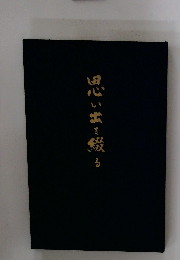 思い出を綴る